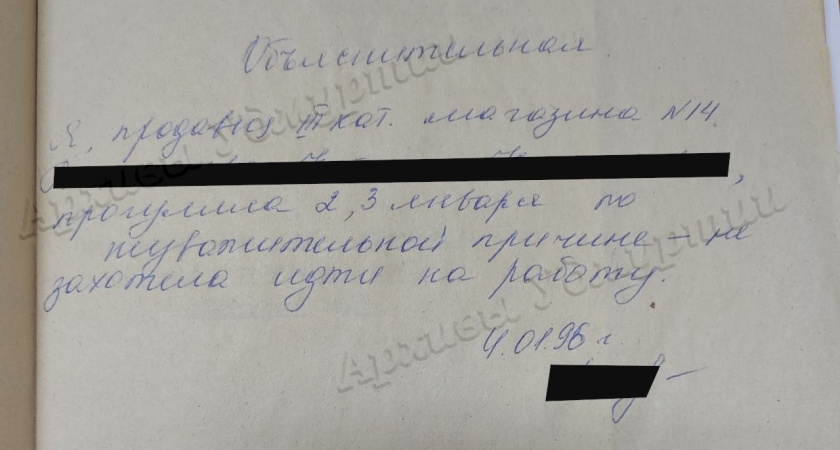 Объяснительная
Я, продавец III кат. магазина N14
,
прогуляла 2, 3 января по
неуважительной причине – не
захотела идти на работу.
4.01.96 г.
Архивы Удмуртии
Архивы Удмуртии